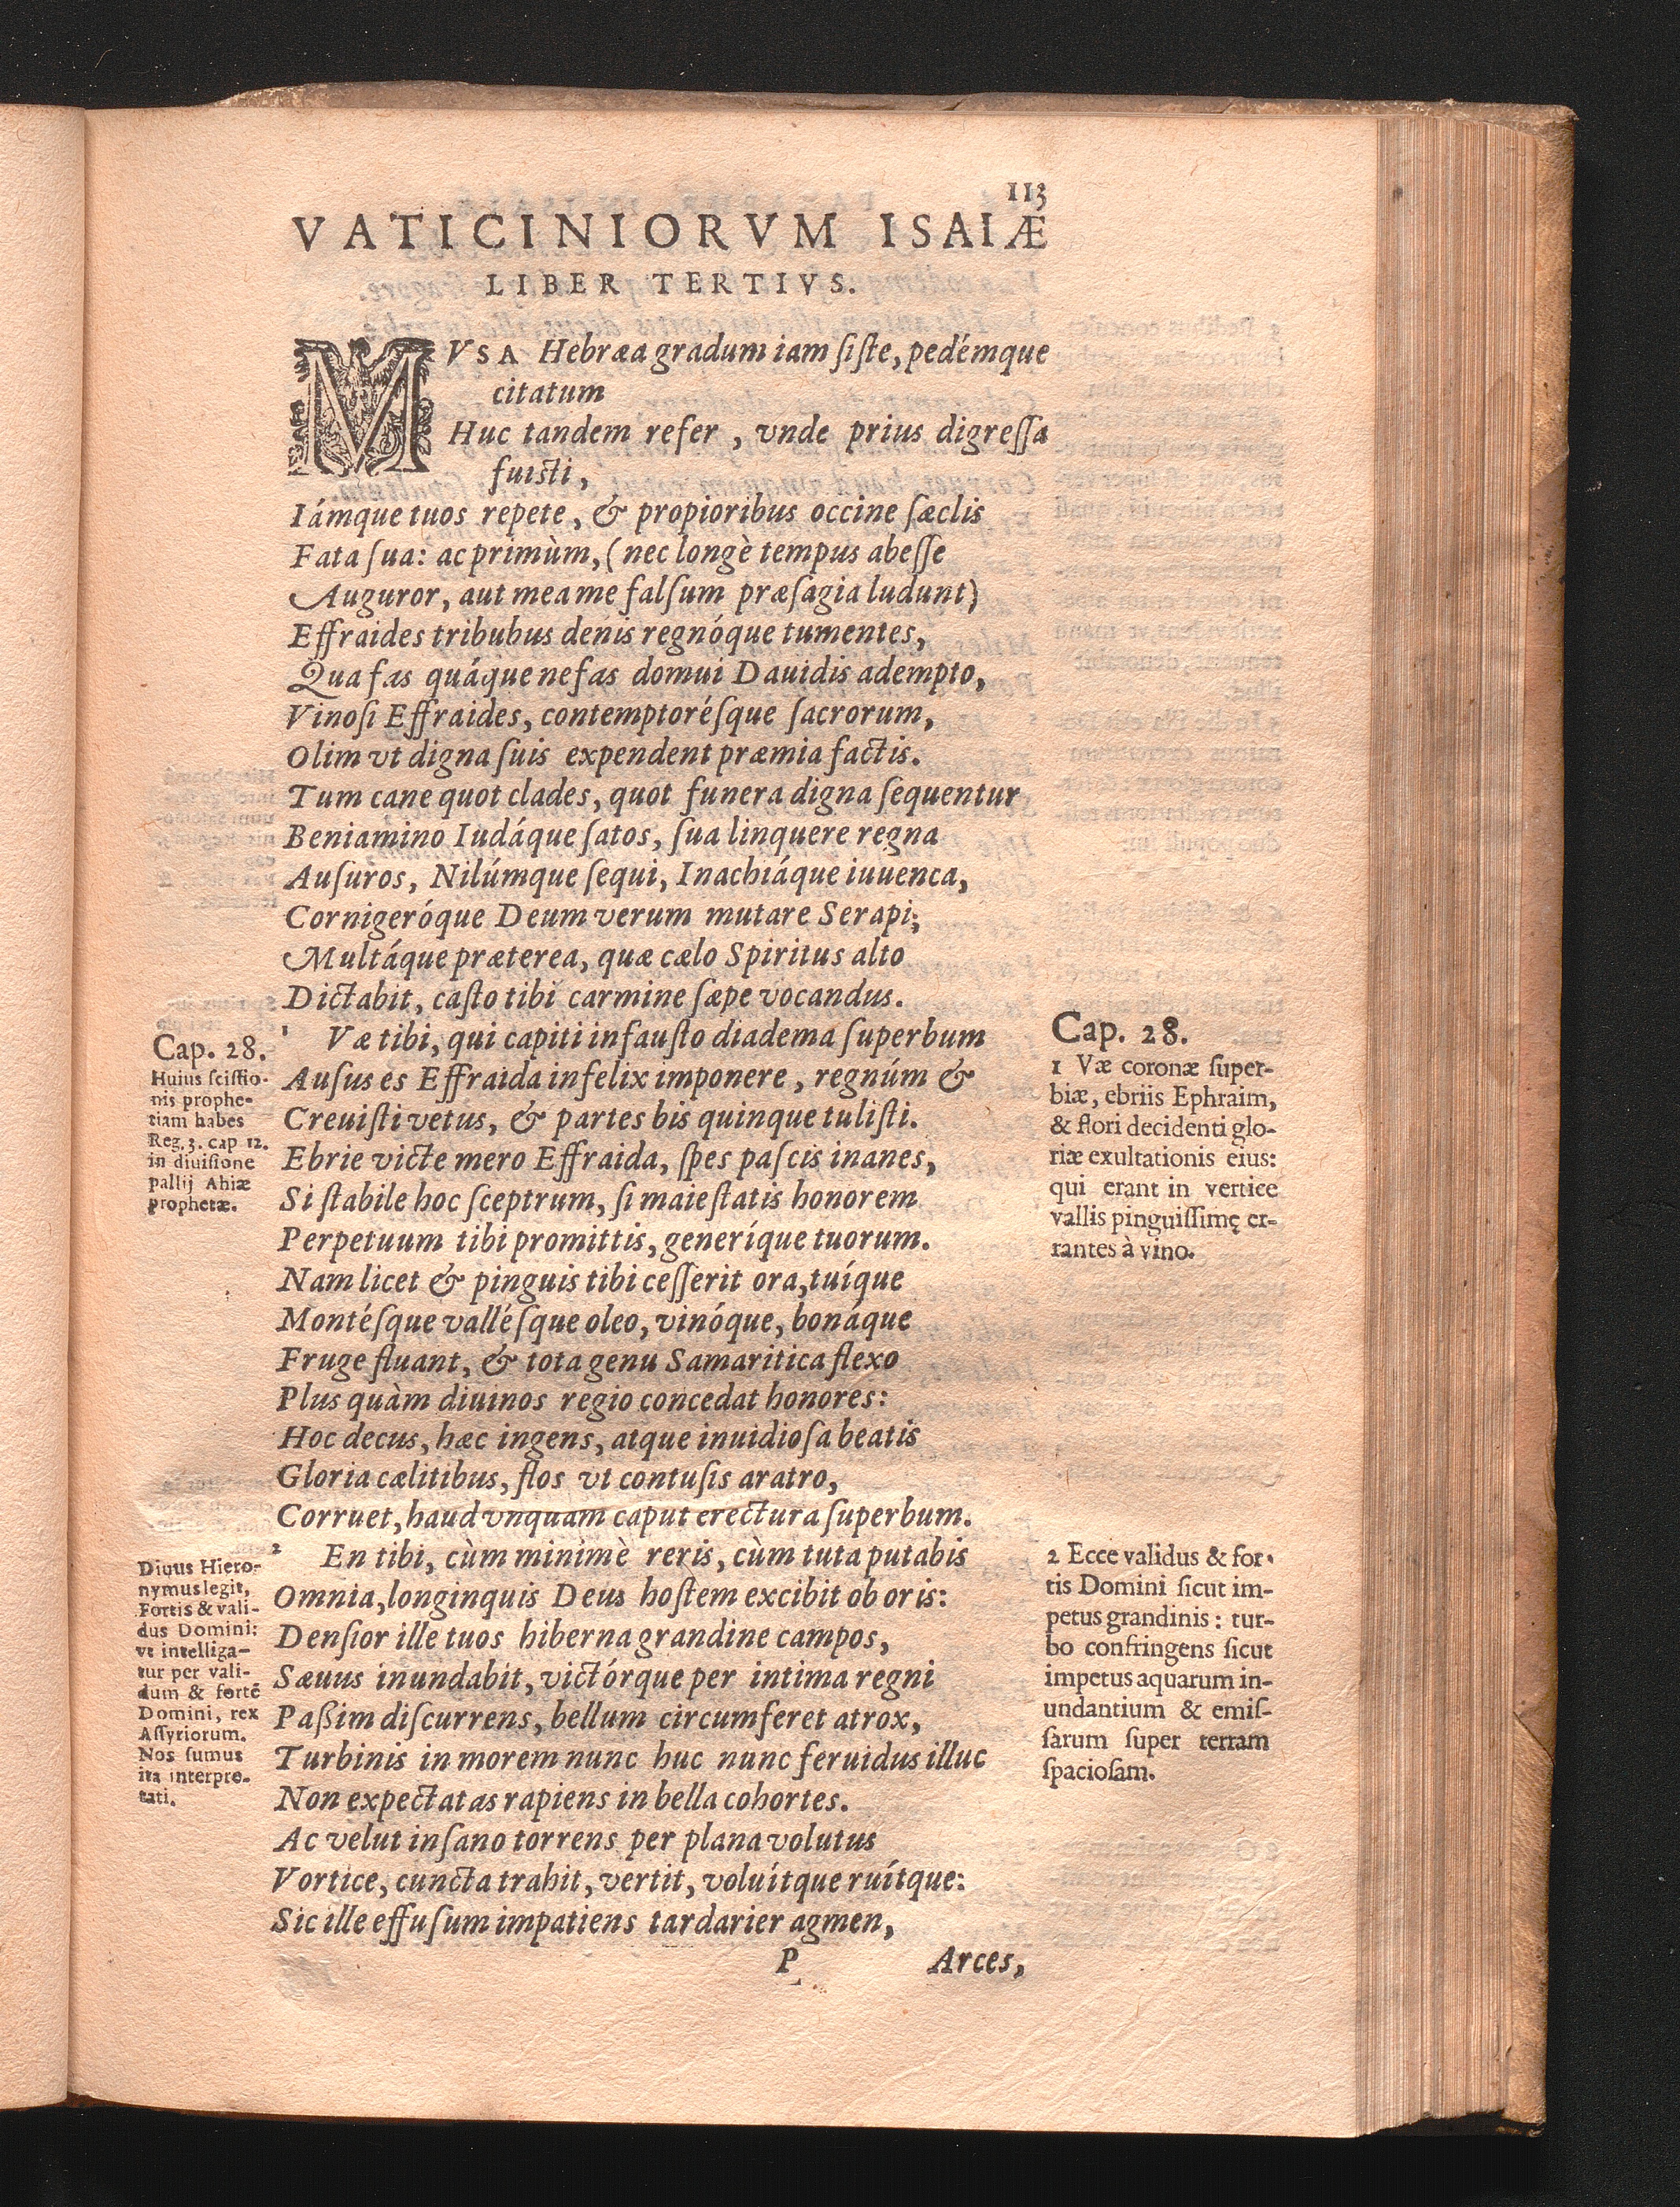 113
VATICINIORVM ISAIÆ
LIBER TERTIVS.
MVSA Hebræa gradum iam ſiſte, pedémque
citatum
Huc tandem refer, vnde prius digreſſa
fuisti,
Iámque tuos repete, & propioribus occine ſæclis
Fata ſua: ac primùm, (nec longè tempus abeſſe
Auguror, aut mea me falſum præſagia ludunt)
Effraides tribubus denis regnóque tumentes,
Qua fas quáque nefas domui Dauidis adempto,
Vinoſi Effraides, contemptoréſque ſacrorum,
Olim vt digna ſuis expendent præmia factis.
Tum cane quot clades, quot funera digna ſequentur
Beniamino Iudáque ſatos, ſua linquere regna
Auſuros, Nilúmque ſequi, Inachiáque iuuenca,
Cornigeróque Deum verum mutare Serapi;
Multáque præterea, quæ cælo Spiritus alto
Dictabit, caſto tibi carmine ſæpe vocandus.
1 Væ tibi, qui capiti infauſto diadema ſuperbum
Auſus es Effraida infelix imponere, regnúm &
Creuiſti vetus, & partes bis quinque tuliſti.
Ebrie victe mero Effraida, ſpes paſcis inanes,
Si ſtabile hoc ſceptrum, ſi maieſtatis honorem
Perpetuum tibi promittis, generíque tuorum.
Nam licet & pinguis tibi ceſſerit ora, tuíque
Montéſque valléſque oleo, vinóque, bonáque
Fruge fluant, & tota genu Samaritica flexo
Plus quàm diuinos regio concedat honores:
Hoc decus, hæc ingens, atque inuidioſa beatis
Gloria cælitibus, flos vt contuſis aratro,
Corruet, haud vnquam caput erectura ſuperbum.
2 En tibi, cùm minimè reris, cùm tuta putabis
Omnia, longinquis Deus hoſtem excibit ob oris:
Denſior ille tuos hiberna grandine campos,
Sæuus inundabit, victórque per intima regni
Paßim diſcurrens, bellum circumferet atrox,
Turbinis in morem nunc huc nunc feruidus illuc
Non expectatas rapiens in bella cohortes.
Ac velut inſano torrens per plana volutus
Vortice, cuncta trahit, vertit, voluítque ruítque:
Sic ille effuſum impatiens tardarier agmen,
P Arces,
Cap. 28.
Huius ſciſſio-
nis prophe-
tiam habes
Reg. 3. cap 12.
in diuiſione
pallij Ahiæ
prophetæ.
Diuus Hiero-
nymus legit,
Fortis & vali-
dus Domini:
vt intelliga-
tur per vali-
dum & fortē
Domini, rex
Aſſyriorum.
Nos ſumus
ita interpre-
tati.
Cap. 28.
1 Væ coronæ ſuper-
biæ, ebriis Ephraim,
& flori decidenti glo-
riæ exultationis eius:
qui erant in vertice
vallis pinguiſſimę er-
rantes à vino.
2 Ecce validus & for-
tis Domini ſicut im-
petus grandinis: tur-
bo confringens ſicut
impetus aquarum in-
undantium & emiſ-
ſarum ſuper terram
ſpacioſam.